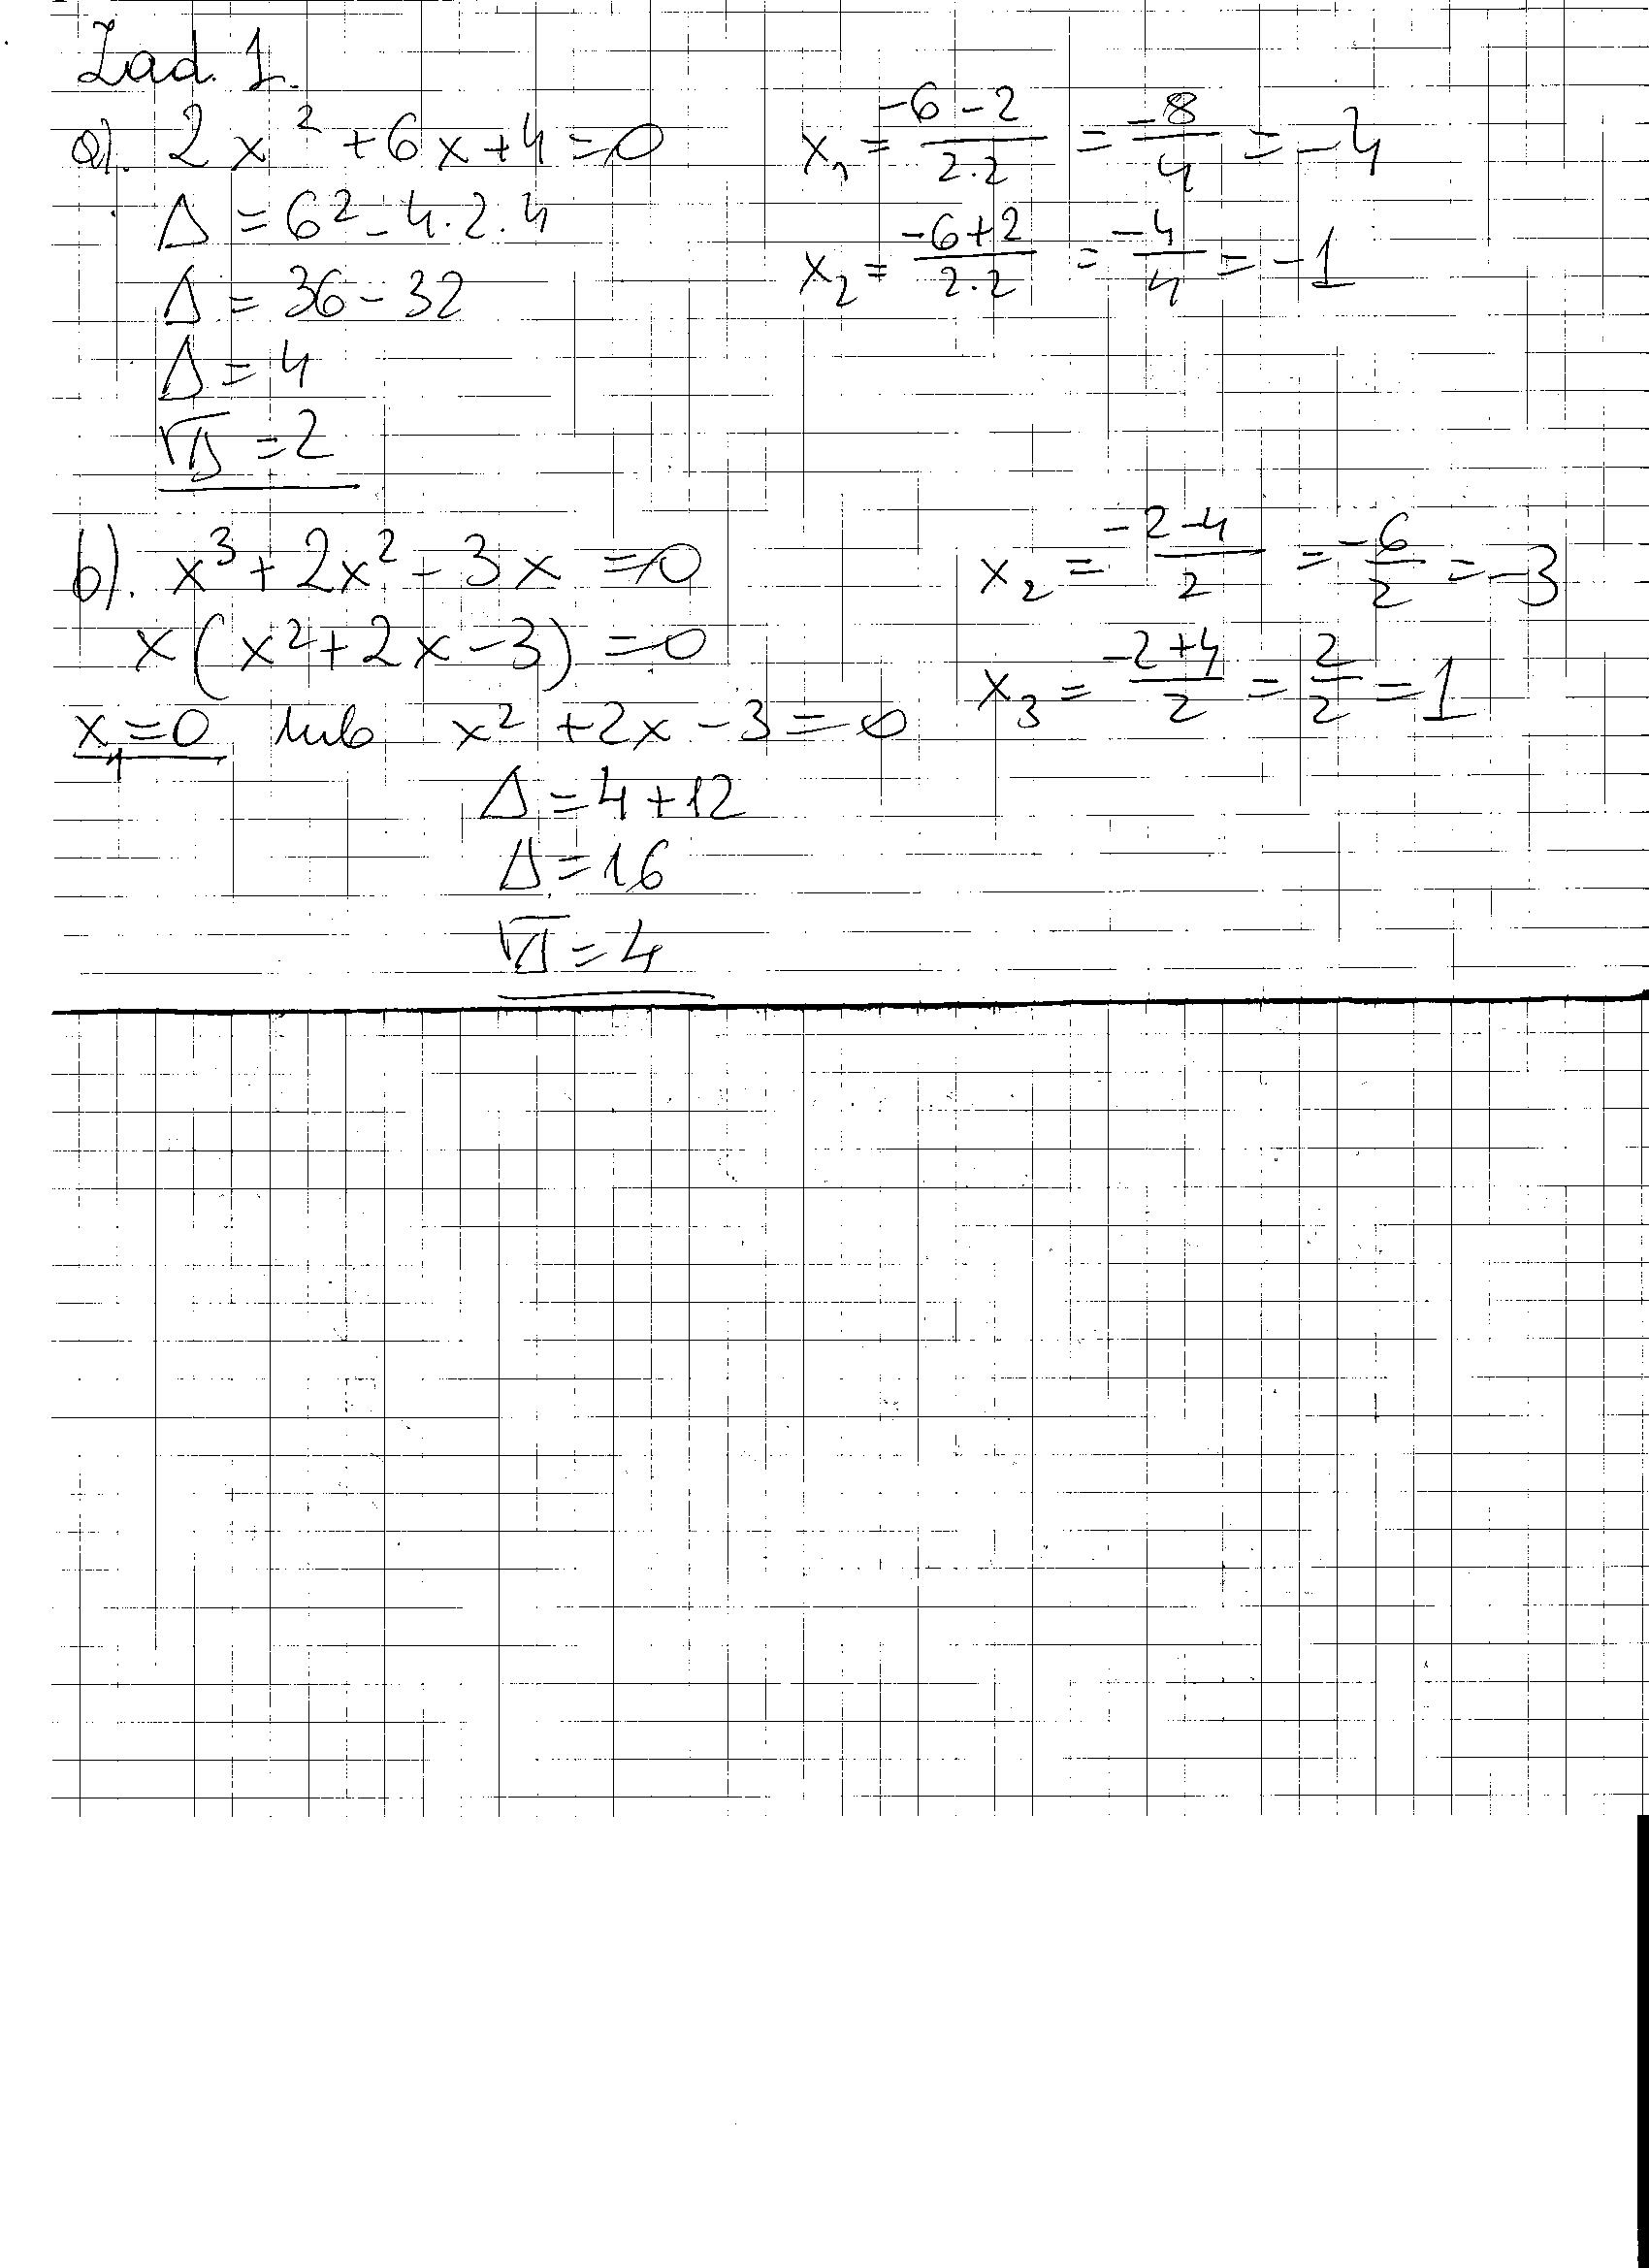 Zad. 1.
a). 2x² + 6x + 4 = 0
Δ = 6² - 4·2·4
Δ = 36 - 32
Δ = 4
√Δ = 2
x₁ = (-6-2)/(2·2) = -8/4 = -4
x₂ = (-6+2)/(2·2) = -4/4 = -1
b). x³ + 2x² - 3x = 0
x(x² + 2x - 3) = 0
x₁ = 0 lub x² + 2x - 3 = 0
Δ = 4 + 12
Δ = 16
√Δ = 4
x₂ = (-2-4)/2 = -6/2 = -3
x₃ = (-2+4)/2 = 2/2 = 1